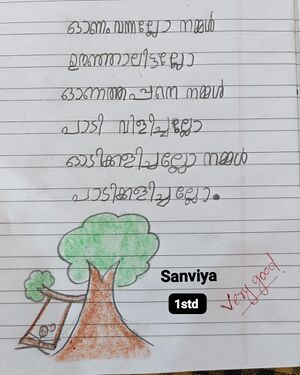 ഓണം വന്നല്ലോ നമ്മൾ
ഊഞ്ഞാലിട്ടല്ലോ
ഓണത്തപ്പനെ നമ്മൾ
പാടി വിളിച്ചല്ലോ
ഓടിക്കളിച്ചല്ലോ നമ്മൾ
പാടിക്കളിച്ചല്ലോ.
Sanviya
1std
Very good!